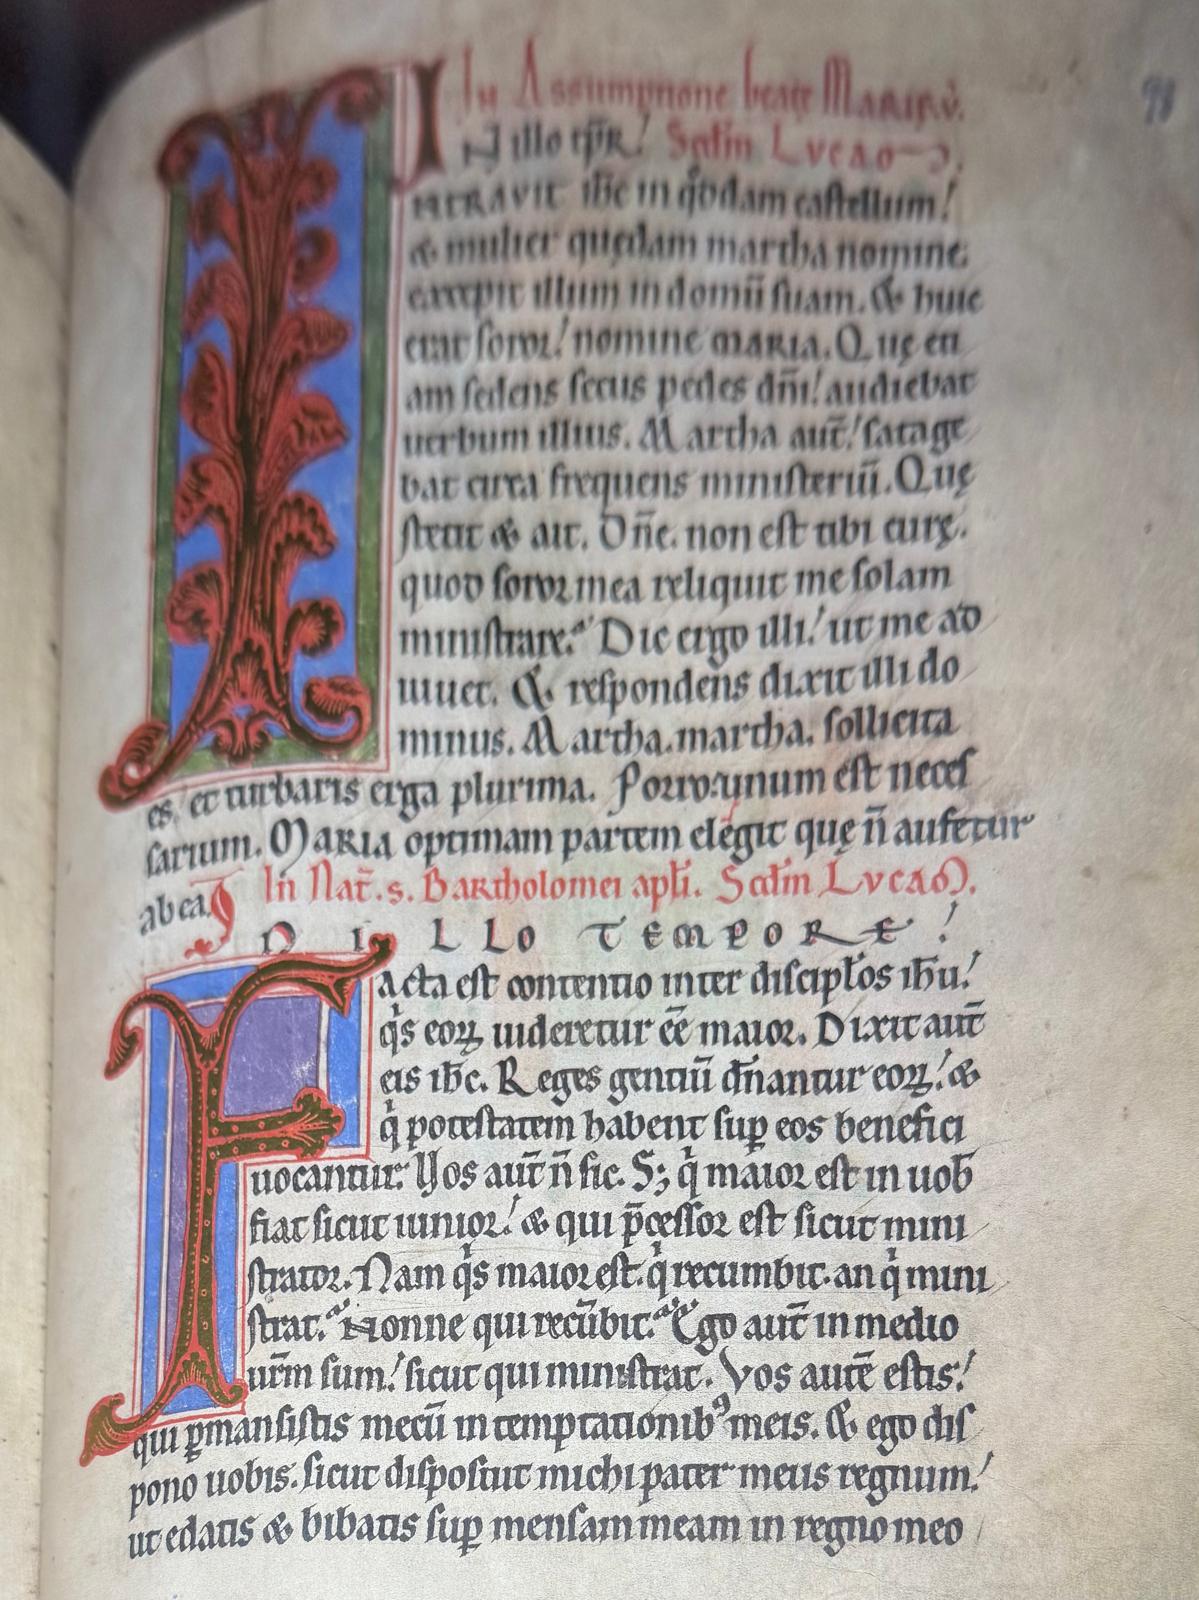 In Assumptione beate Marię v.
IN illo tp̄r! Scd̄m Lvcaꝏ.
INTRAVIT ih̄c in qͦddam castellum!
& mulier quędam martha nomine
excepit illum in domū suam. & huic
erat soror! nomine MARIA. Quę eti
am sedens secus pedes dn̄i! audiebat
uerbum illius. Martha aut̄! satage
bat circa frequens ministeriū. Quę
stetit & ait. Dn̄e. non est tibi curę.
quod soror mea reliquit me solam
ministrare. Dic ergo illi! ut me ad
iuuet. & respondens dixit illi do
minus. Martha. martha. sollicita
es. et turbaris erga plurima. Porro unum est neces
sarium. MARIA optimam partem elegit quę n̄ aufetur
ab ea. In Nat̄. s. Bartholomei apl̄i. Scd̄m Lvcaꝏ.
IN ILLO TEMPORE!
Facta est contentio inter discipl̄os ih̄u!
qͥs eoꝝ uideretur eē maior. Dixit aut̄
eis ih̄c. Reges gentiū dn̄antur eoꝝ! &
qͥ potestatem habent sup̱ eos benefici
uocantur. Vos aut̄ n̄ sic. S; qͥ maior est in uob̄
fiat sicut iunior! & qui p̄cessor est sicut mini
strator. Nam qͥs maior est. qͥ recumbit. an qͥ mini
strat. Nonne qui recūbit. Ego aut̄ in medio
ur̄m sum! sicut qui ministrat. Vos autē estis!
qui ꝑmansistis mecū in temptationibꝰ meis. & ego dis
pono uobis. sicut disposuit michi pater meus regnum!
ut edatis & bibatis suꝑ mensam meam in regno meo